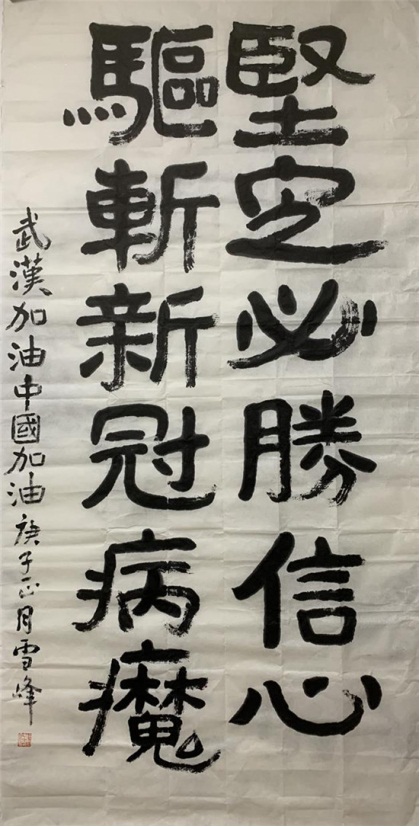 堅定必勝信心
驅斬新冠病魔
武漢加油中國加油庚子正月雪峰